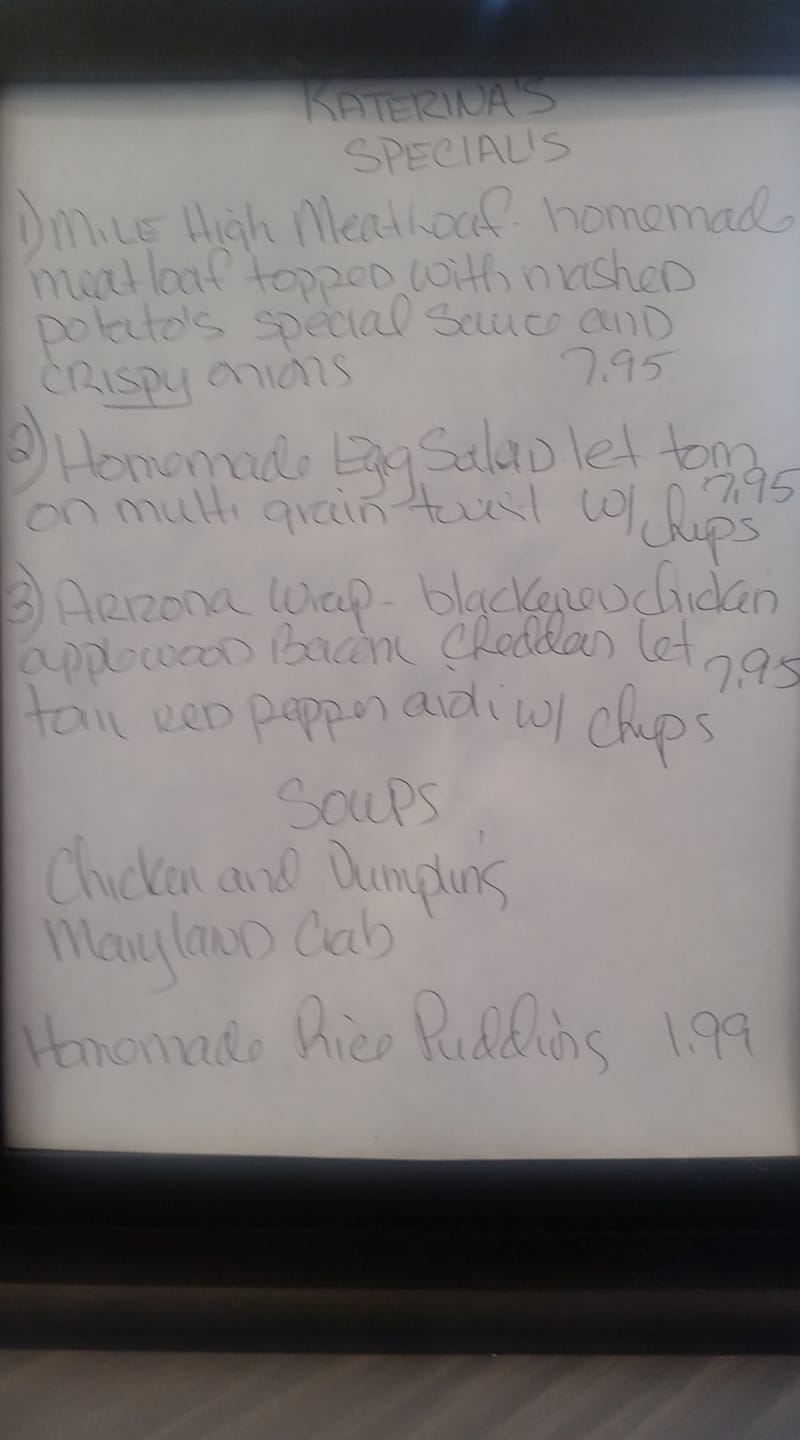 KATERINA'S
SPECIAL'S
1) MILE High Meatloaf - homemade
meatloaf topped with mashed
potato's special sauce and
CRISPY onions 7.95
2) Homemade Egg Salad let tom
on multi grain toast w/ chips 7.95
3) Arizona Wrap - blackened chicken
applewood Bacon Cheddar let
tom red pepper aioli w/ chips 7.95
Soups
Chicken and Dumplin's
Maryland Crab
Homemade Rice Pudding 1.99